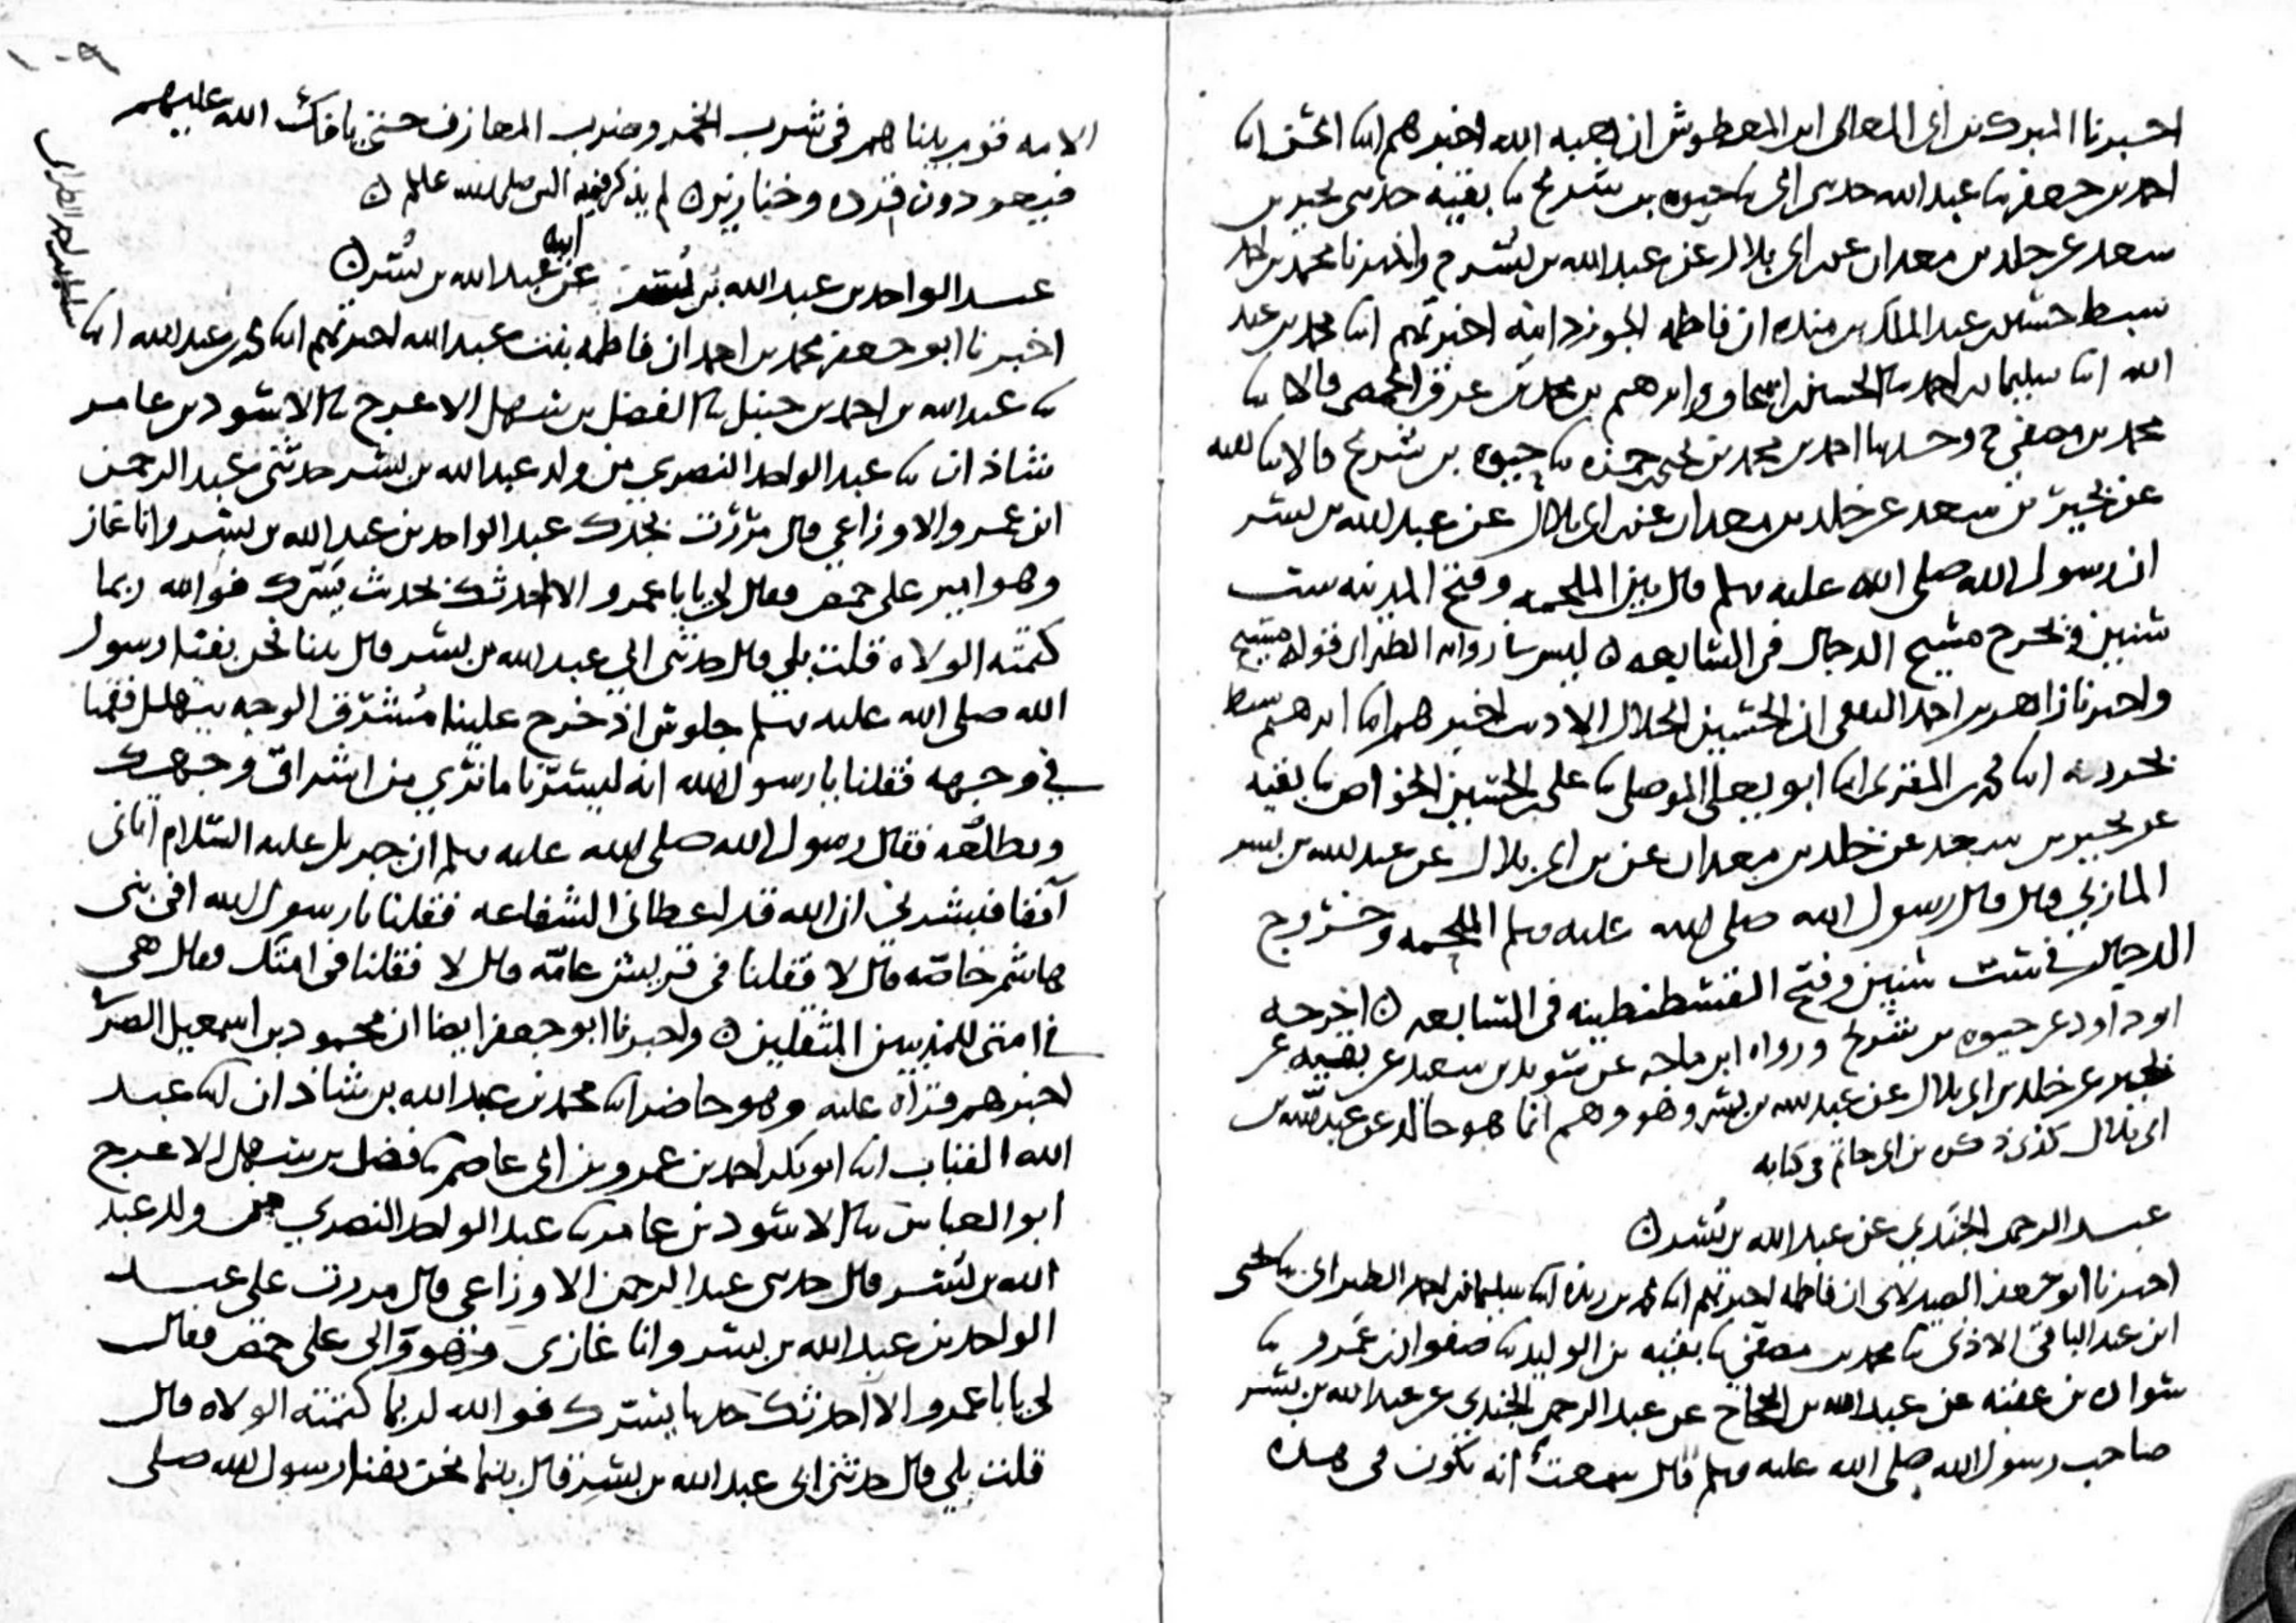 اخبرنا المبرك بن ابى المعالى ابن المعطوش ان هبه الله اخبرهم ابنا الحسن ابنا
احمد بن جعفر ثنا عبد الله حدثنى ابى ثنا حيوه بن شريح ثنا بقيه حدثنى بحير بن
سعد عن خلد بن معدان عن ابن ابى بلال عن عبد الله بن بسر ح واخبرنا محمد بن احمد
سبط حسين بن عبد الملك بن منده ان فاطمه الجوزدانيه اخبرتهم ابنا محمد بن عبد
الله ابنا سليمان بن احمد ثنا الحسين بن اسحاق وابرهيم بن محمد بن عرق الحمصى قالا ثنا
محمد بن مصفى ح وحدثنا احمد بن محمد بن يحيى بن حمزه ثنا حيوه بن شريح قالا ثنا بقيه
عن بحير بن سعد عن خلد بن معدان عن ابن ابى بلال عن عبد الله بن بسر
ان رسول الله صلى الله عليه وسلم قال بين الملحمه وفتح المدينه ست
سنين ويخرج مسيح الدجال فى السابعه ليس فى روايه الطبرانى قوله مسيح
واخبرنا زاهر بن احمد الثقفى ان الحسين الخلال الاديب اخبرهم ابنا ابرهيم سبط
بحرويه ابنا محمد بن المقرئ ابنا ابو يعلى الموصلى ثنا على بن الحسين الخواص ثنا بقيه
عن بحير بن سعد عن خلد بن معدان عن بن ابى بلال عن عبد الله بن بسر
المازنى قال قال رسول الله صلى الله عليه وسلم الملحمه وخروج
الدجال فى ست سنين وفتح القسطنطينه فى السابعه اخرجه
ابو داود عن حيوه بن شريح ورواه ابن ماجه عن سويد بن سعيد عن بقيه عن
بحير عن خلد بن ابى بلال عن عبد الله بن بسر وهو وهم انما هو خالد عن عبد الله بن
ابى بلال كذى ذكره بن ابى حاتم فى كتابه
عبد الرحمن الجندى عن عبد الله بن بسر
اخبرنا ابو جعفر الصيدلانى ان فاطمه اخبرتهم ابنا محمد بن ريذه ابنا سليمان بن احمد الطبرانى ثنا يحيى
ابن عبد الباقى الاذنى ثنا محمد بن مصفى ثنا بقيه بن الوليد ثنا صفوان بن عمرو ثنا
عن عبد الله بن الحجاج عن عبد الرحمن الجندى عن عبد الله بن بسر
صاحب رسول الله صلى الله عليه وسلم قال سمعت انه يكون فى هذه
١٠٩
الامه قوم بيناهم فى شرب الخمر وضرب المعازف حتى الله عليهم
فيعودون قرده وخنازير لم يذكر فيه النبى صلى الله عليه وسلم
عبد الواحد بن عبد الله بن بسر عن ابيه عبد الله بن بسر
اخبرنا ابو جعفر محمد بن احمد ان فاطمه بنت عبد الله اخبرتهم ابنا محمد بن عبد الله ابنا
سليمان بن احمد الطبرانى
ثنا عبد الله بن احمد بن حنبل ثنا الفضل بن سهل الاعرج ثنا الاسود بن عامر
شاذان ثنا عبد الواحد النصرى من ولد عبد الله بن بسر حدثنى عبد الرحمن
ابن عمرو الاوزاعى قال مررت بجدك عبد الواحد بن عبد الله بن بسر وانا غاز
وهو امير على حمص فقال لى يا با عمرو الا احدثك بحديث يسرك فوالله ربما
كتمته الولاه قلت بلى قال حدثنى ابى عبد الله بن بسر قال بينا نحن بفنا رسول
الله صلى الله عليه وسلم جلوس اذ خرج علينا مشرق الوجه يتهلل فقمنا
فى وجهه فقلنا يا رسول الله انه ليسرنا ما نرى من اشراق وجهك
وتطلقه فقال رسول الله صلى الله عليه وسلم ان جبريل عليه السلام اتانى
آنفا فبشرنى ان الله قد اعطانى الشفاعه فقلنا يا رسول الله افى بنى
هاشم خاصه قال لا فقلنا فى قريش عامه قال لا فقلنا فى امتك فقال هى
فى امتى للمذنبين المثقلين واخبرنا ابو جعفر ايضا ان محمود بن اسمعيل الصيرفى
اخبرهم قراه عليه وهو حاضر ابنا محمد بن عبد الله بن شاذان ابنا عبد
الله القباب ابنا ابو بكر احمد بن عمرو بن ابى عاصم ثنا فضل بن سهل الاعرج
ابو العباس ثنا الاسود بن عامر ثنا عبد الواحد النصرى من ولد عبد
الله بن بسر قال حدثنى عبد الرحمن الاوزاعى قال مررت على عبد
الواحد بن عبد الله بن بسر وانا غازى وهو والى على حمص فقال
لى يا با عمرو الا احدثك حديثا يسرك فوالله لربما كتمته الولاه قال
قلت بلى قال حدثنى ابى عبد الله بن بسر قال بينما نحن بفنا رسول الله صلى